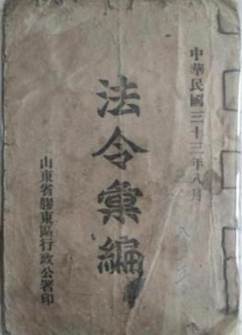 中華民國三十三年八月
法令彙編
山東省膠東區行政公署印